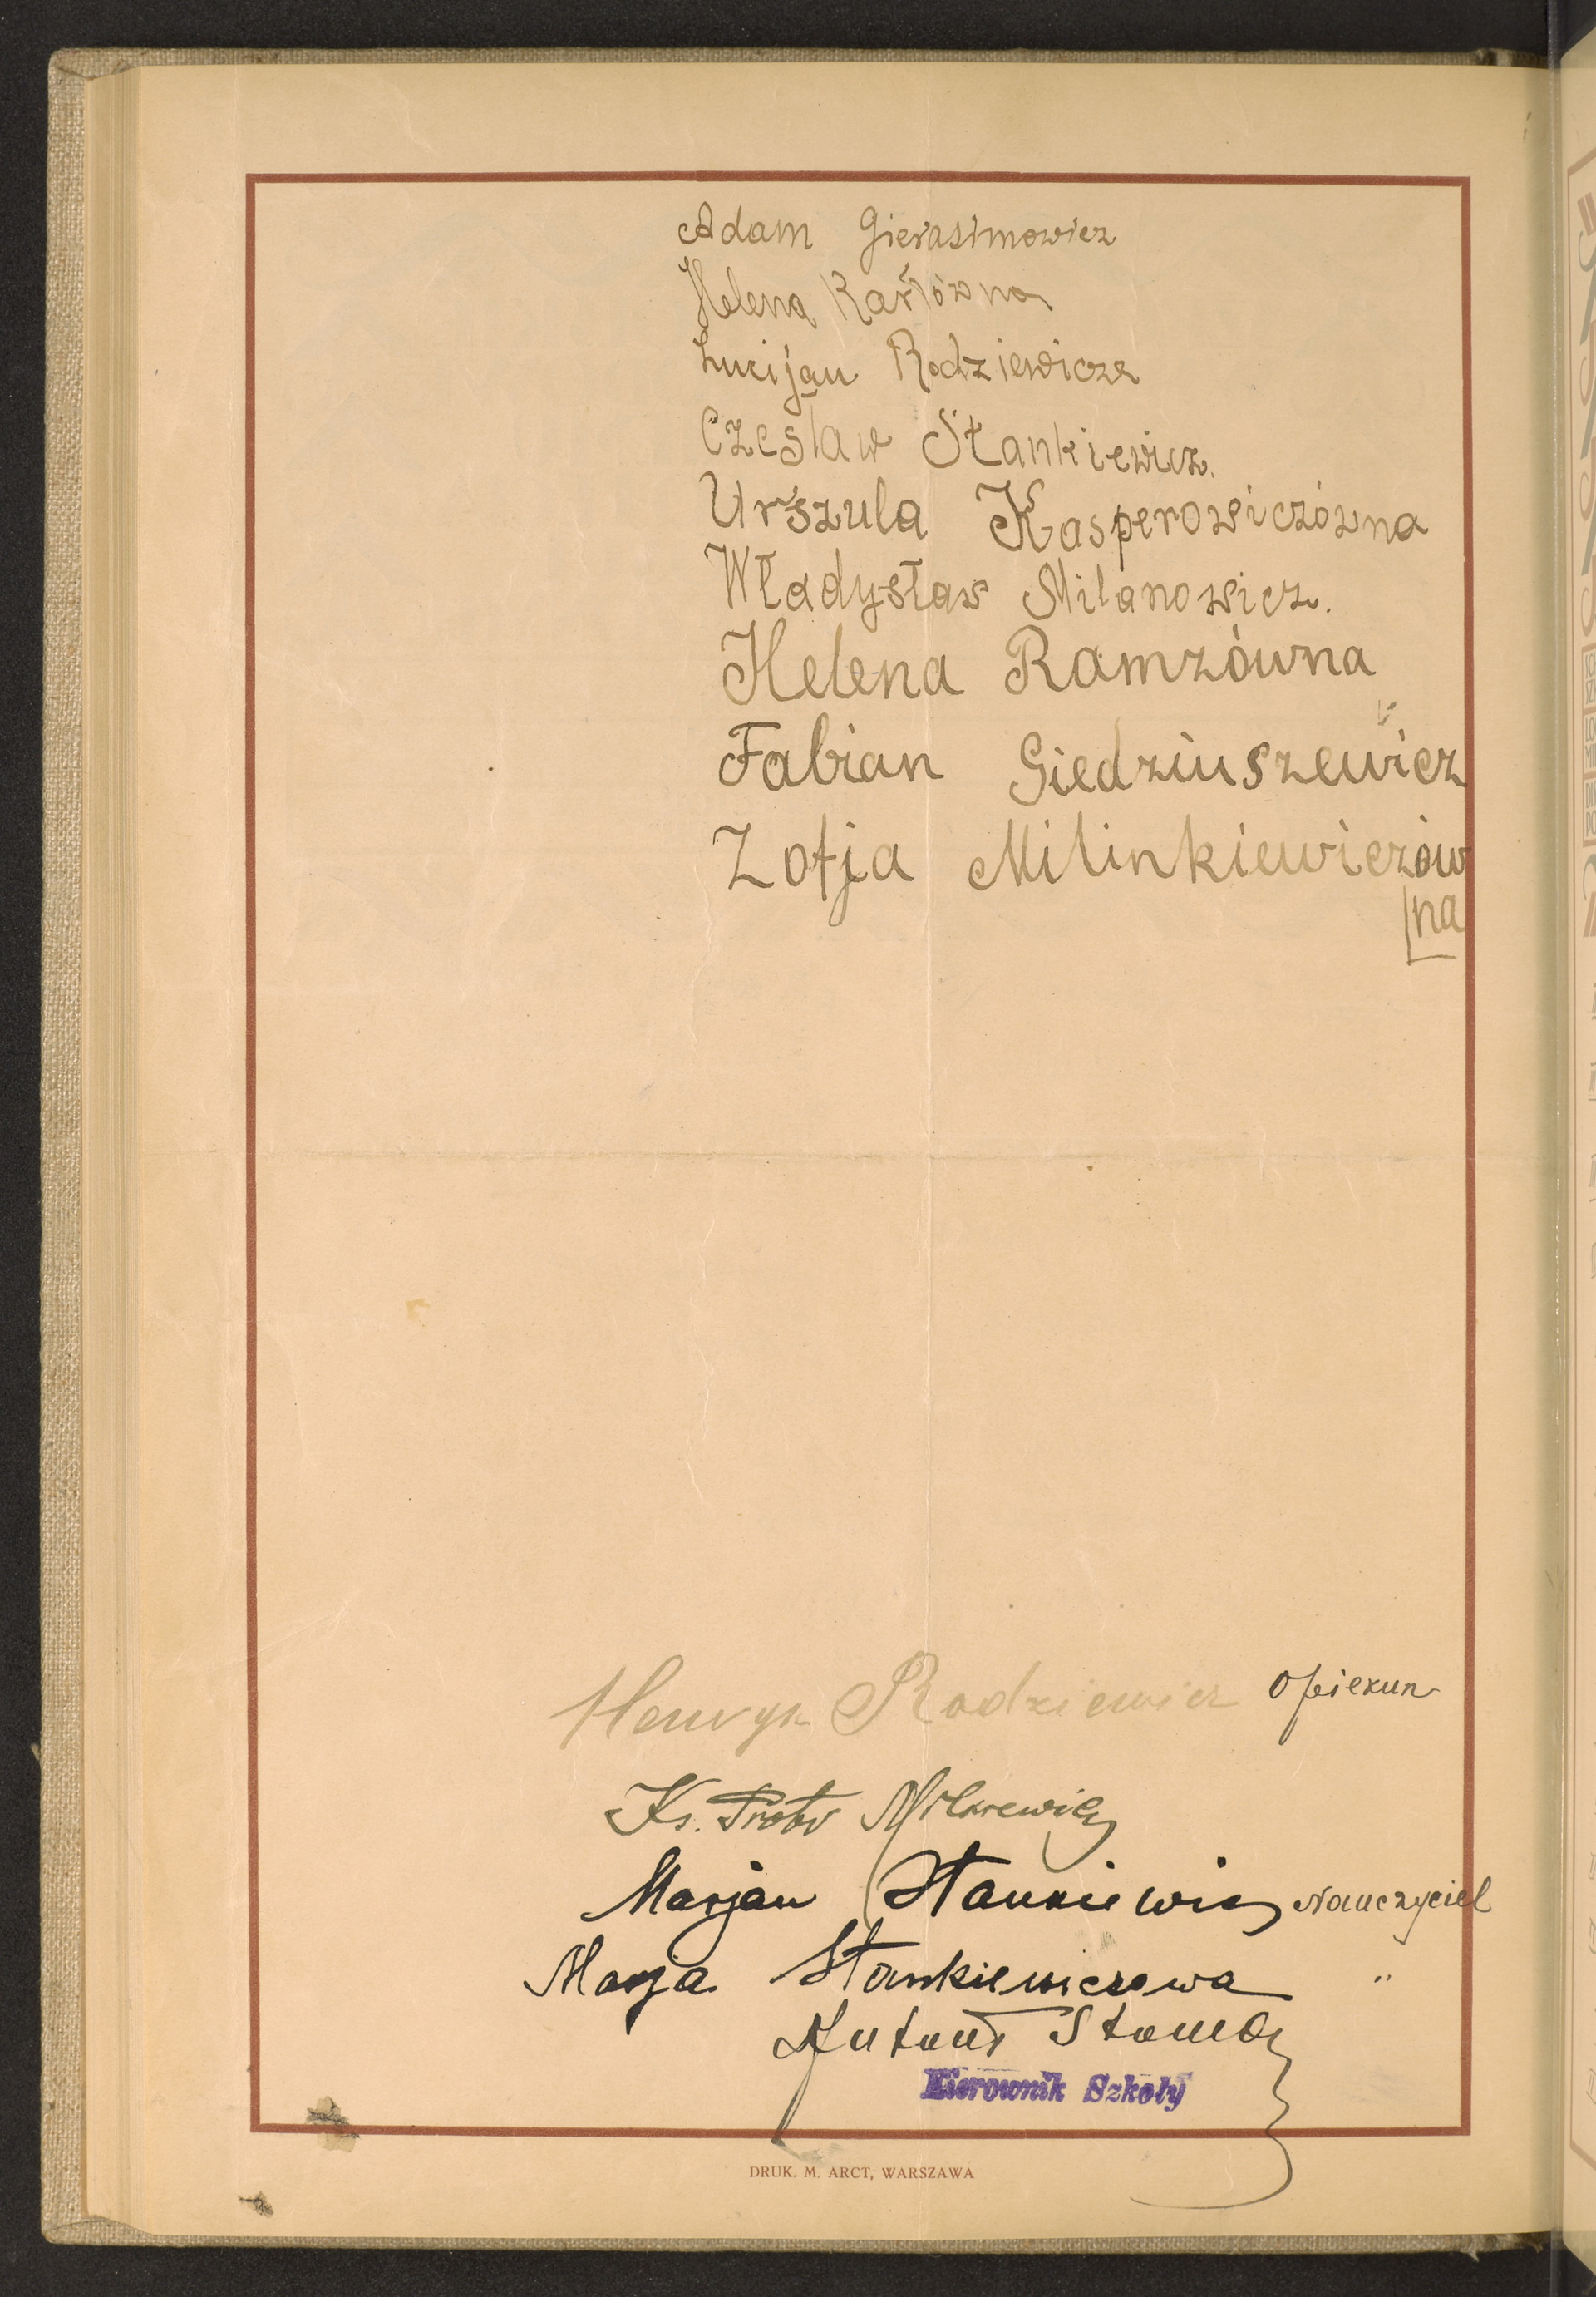 Adam Gierasimowicz
Helena Karłówna
Lucijan Rodziewicz
Czesław Stankiewicz.
Urszula Kasperowiczówna
Władysław Milanowicz.
Helena Ramzówna
Fabian Giedziuszewicz
Zofja Milinkiewiczów
na
Henryk Rodziewicz Opiekun
Ks. Piotr
Marjan Stankiewicz Nauczyciel
Marja Stankiewiczowa "
Antoni
Kierownik Szkoły
DRUK. M. ARCT, WARSZAWA